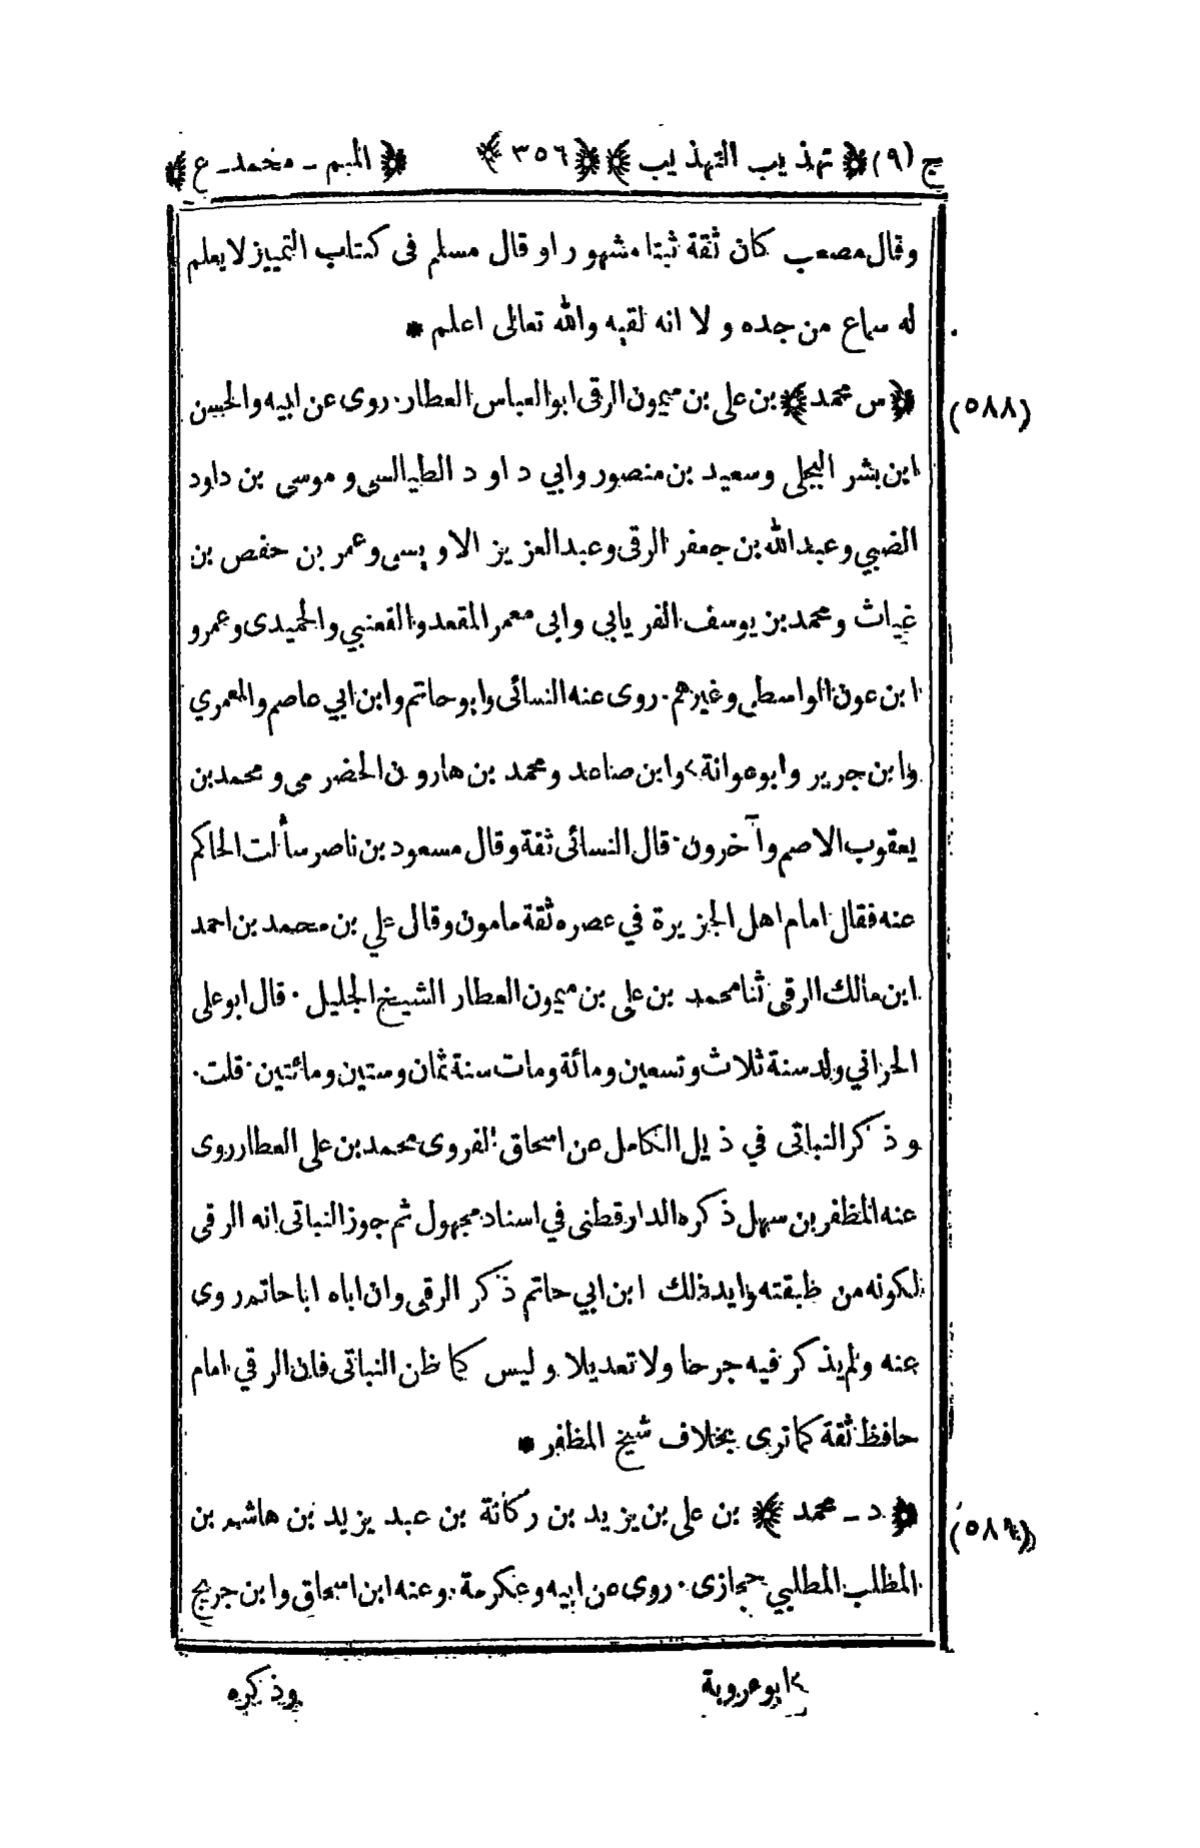 ج (٩) ﴿ تهذيب التهذيب ﴾ ﴿ ٣٥٦ ﴾ ﴿ الميم - محمد - ع ﴾
وقال مصعب كان ثقة ثبتا مشهورا وقال مسلم فى كتاب التمييز لا يعلم
له سماع من جده ولا انه لقيه والله تعالى اعلم *
(٥٨٨) ﴿ س محمد ﴾ بن على بن ميمون الرقى ابو العباس العطار. روى عن ابيه والحسن
ابن بشر البجلى وسعيد بن منصور وابي داود الطيالسى وموسى بن داود
الضبي وعبد الله بن جعفر الرقى وعبد العزيز الاويسى وعمر بن حفص بن
غياث ومحمد بن يوسف الفريابي وابى معمر المقعد والقعنبي والحميدى وعمرو
ابن عون الواسطى وغيرهم. روى عنه النسائى وابو حاتم وابن ابي عاصم والمعمري
وابن جرير وابو عوانة > وابن صاعد ومحمد بن هارون الحضرمى ومحمد بن
يعقوب الاصم وآخرون. قال النسائى ثقة وقال مسعود بن ناصر سألت الحاكم
عنه فقال امام اهل الجزيرة في عصره ثقة مامون وقال علي بن محمد بن احمد
ابن مالك الرقى ثنا محمد بن على بن ميمون العطار الشيخ الجليل. قال ابو على
الحراني ولد سنة ثلاث وتسعين ومائة ومات سنة ثمان وستين ومائتين. قلت.
وذكر النباتى في ذيل الكامل عن اسحاق الفروى محمد بن على العطار روى
عنه المظفر بن سهل ذكره الدارقطنى في اسناد مجهول ثم جوز النباتى انه الرقى
لكونه من طبقته وايد ذلك ابن ابي حاتم ذكر الرقى وان اباه ابا حاتم روى
عنه ولم يذكر فيه جرحا ولا تعديلا وليس كما ظن النباتى فان الرقي امام
حافظ ثقة كما ترى بخلاف شيخ المظفر *
(٥٨٩) ﴿ د - محمد ﴾ بن على بن يزيد بن ركانة بن عبد يزيد بن هاشم بن
المطلب المطلبي حجازى. روى عن ابيه وعكرمة. وعنه ابن اسحاق وابن جريج
> ابو عروبة
وذكره